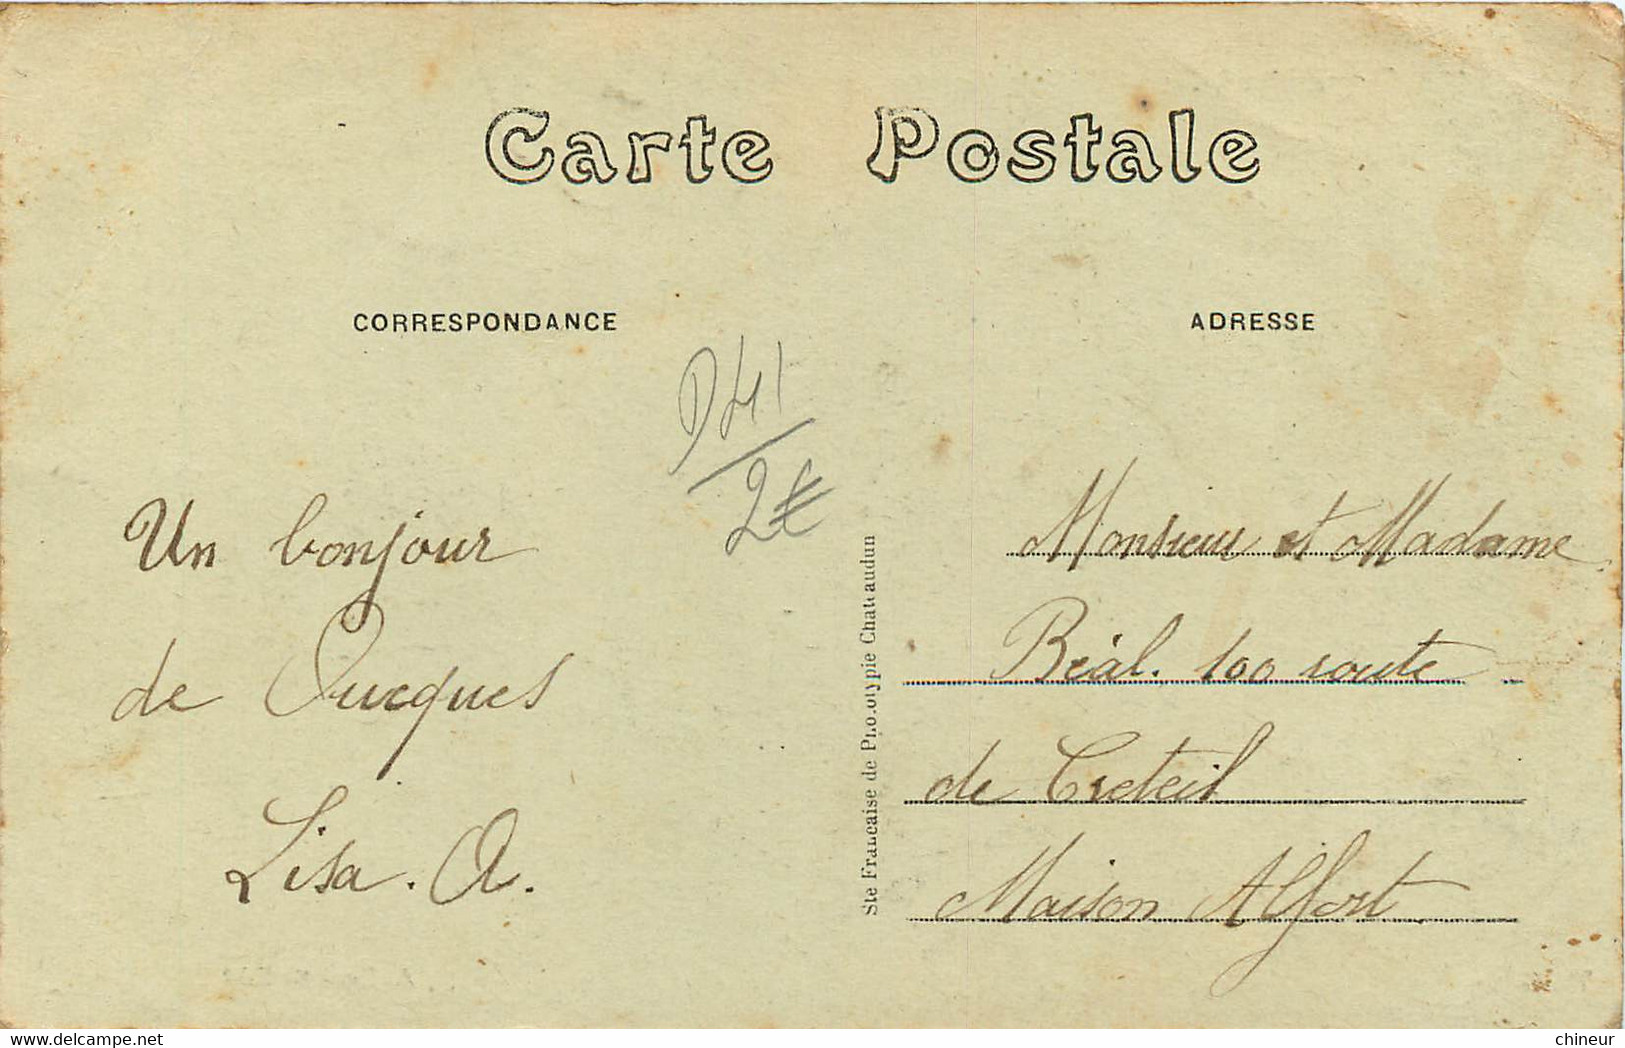 Carte Postale
CORRESPONDANCE
ADRESSE
D41
2€
Un bonjour
de Oucques
Lisa. A.
Ste Française de Phototypie Chateaudun
Monsieur et Madame
Béal. 100 route
de Creteil
Maison Alfort
delcampe.net
chineur